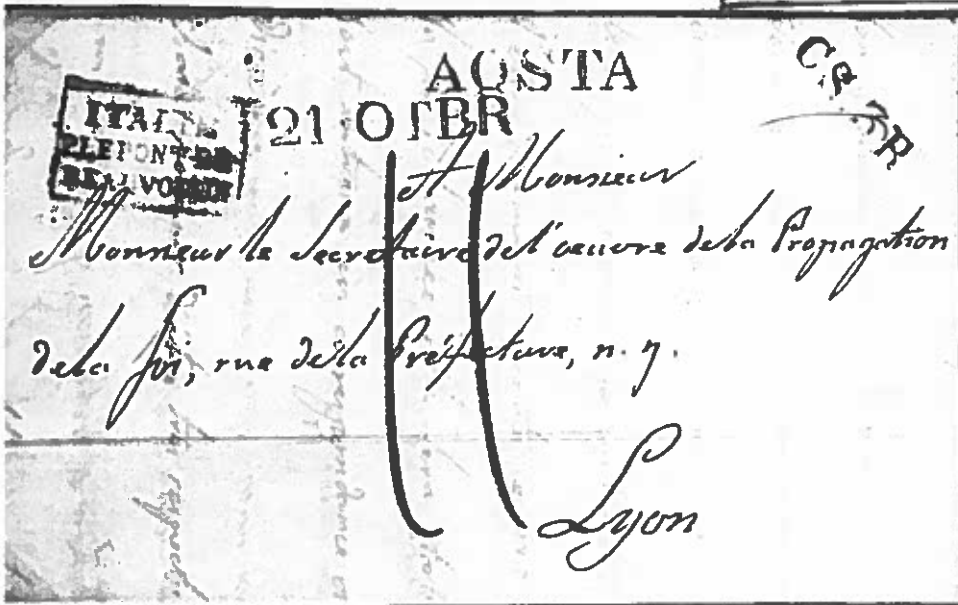 AOSTA
21 OTBR
ITALIE
PAR
LE PONT-DE
BEAUVOISIN
C.S.R
A Monsieur
Monsieur le Secrétaire de l'oeuvre de la Propagation
de la foi, rue de la Préfecture, n. 7.
Lyon